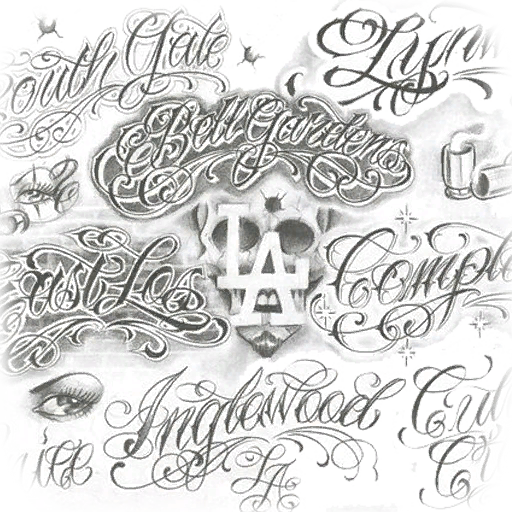 South Gate
Lynw
Bell Gardens
LA
East Los
Compt
Inglewood
LA